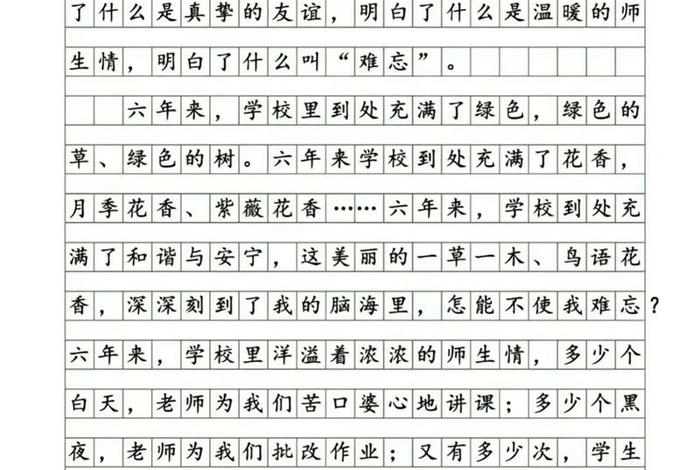 了什么是真挚的友谊，明白了什么是温暖的师
生情，明白了什么叫“难忘”。
六年来，学校里到处充满了绿色，绿色的
草、绿色的树。六年来学校到处充满了花香，
月季花香、紫薇花香……六年来，学校到处充
满了和谐与安宁，这美丽的一草一木、鸟语花
香，深深刻到了我的脑海里，怎能不使我难忘？
六年来，学校里洋溢着浓浓的师生情，多少个
白天，老师为我们苦口婆心地讲课；多少个黑
夜，老师为我们批改作业；又有多少次，学生